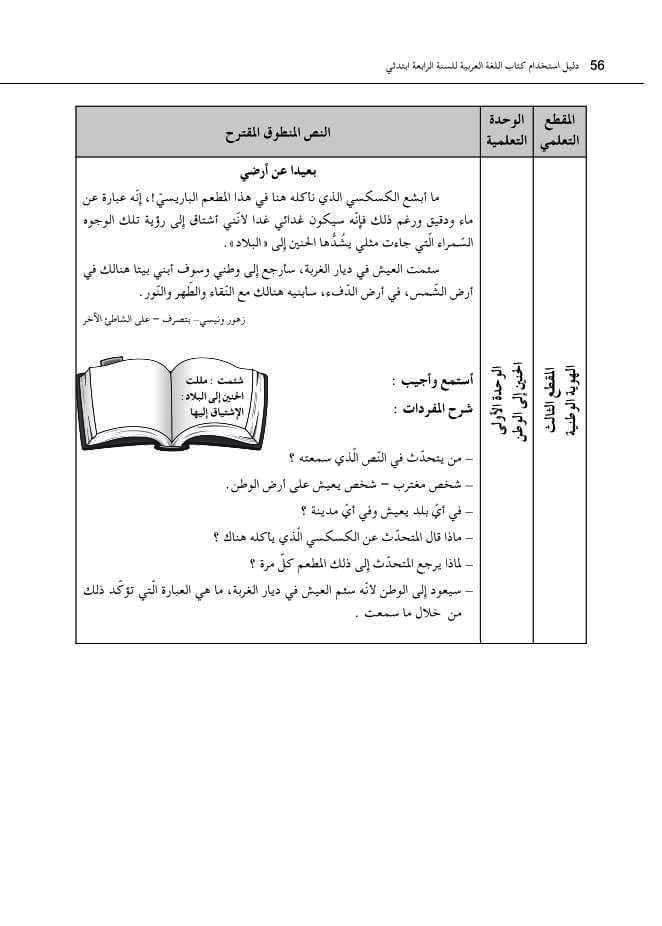 56 دليل استخدام كتاب اللغة العربية للسنة الرابعة ابتدئي
المقطع التعلمي
الوحدة التعلمية
النص المنطوق المقترح
بعيدا عن أرضي
ما أبشع الكسكسي الذي نأكله هنا في هذا المطعم الباريسيّ!، إنّه عبارة عن
ماء ودقيق ورغم ذلك فإنّه سيكون غدائي غدا لأنّني أشتاق إلى رؤية تلك الوجوه
السّمراء الّتي جاءت مثلي يشُدُّها الحنين إلى «البلاد».
سئمت العيش في ديار الغربة، سأرجع إلى وطني وسوف أبني بيتا هنالك في
أرض الشّمس، في أرض الدّفء، سأبنيه هنالك مع النّقاء والطّهر والنّور.
زهور ونيسي– بتصرف – على الشاطئ الآخر
أستمع وأجيب :
شرح المفردات :
شئمت : مللت
الحنين إلى البلاد :
الإشتياق إليها
– من يتحدّث في النّص الّذي سمعته ؟
– شخص مغترب – شخص يعيش على أرض الوطن.
– في أيّ بلد يعيش وفي أيّ مدينة ؟
– ماذا قال المتحدّث عن الكسكسي الّذي يأكله هناك ؟
– لماذا يرجع المتحدّث إلى ذلك المطعم كلّ مرة ؟
– سيعود إلى الوطن لأنّه سئم العيش في ديار الغربة، ما هي العبارة الّتي تؤكّد ذلك
من خلال ما سمعت .
الوحدة الأولى
الحنين إلى الوطن
المقطع الثالث
الهوية الوطنية